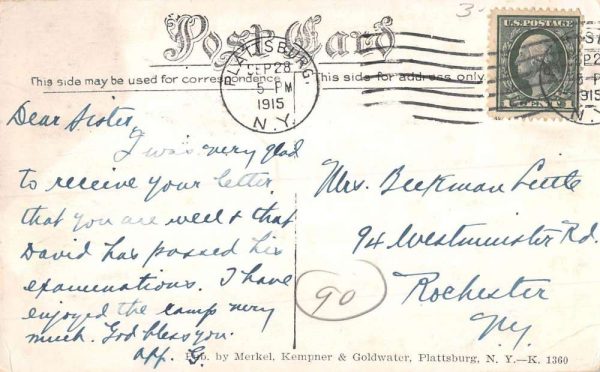 Post Card
This side may be used for correspondence
This side for address only
PLATTSBURG
SEP 28
5 PM
1915
N.Y.
U.S. POSTAGE
1 CENT 1
Dear Sister,
I was very glad
to receive your letter,
that you are well & that
David has passed his
examinations. I have
enjoyed the camp very
much. God bless you.
Mrs. Beekman Little
94 Westminster Rd.
Rochester
N.Y.
90
Pub. by Merkel, Kempner & Goldwater, Plattsburg, N. Y.—K. 1360